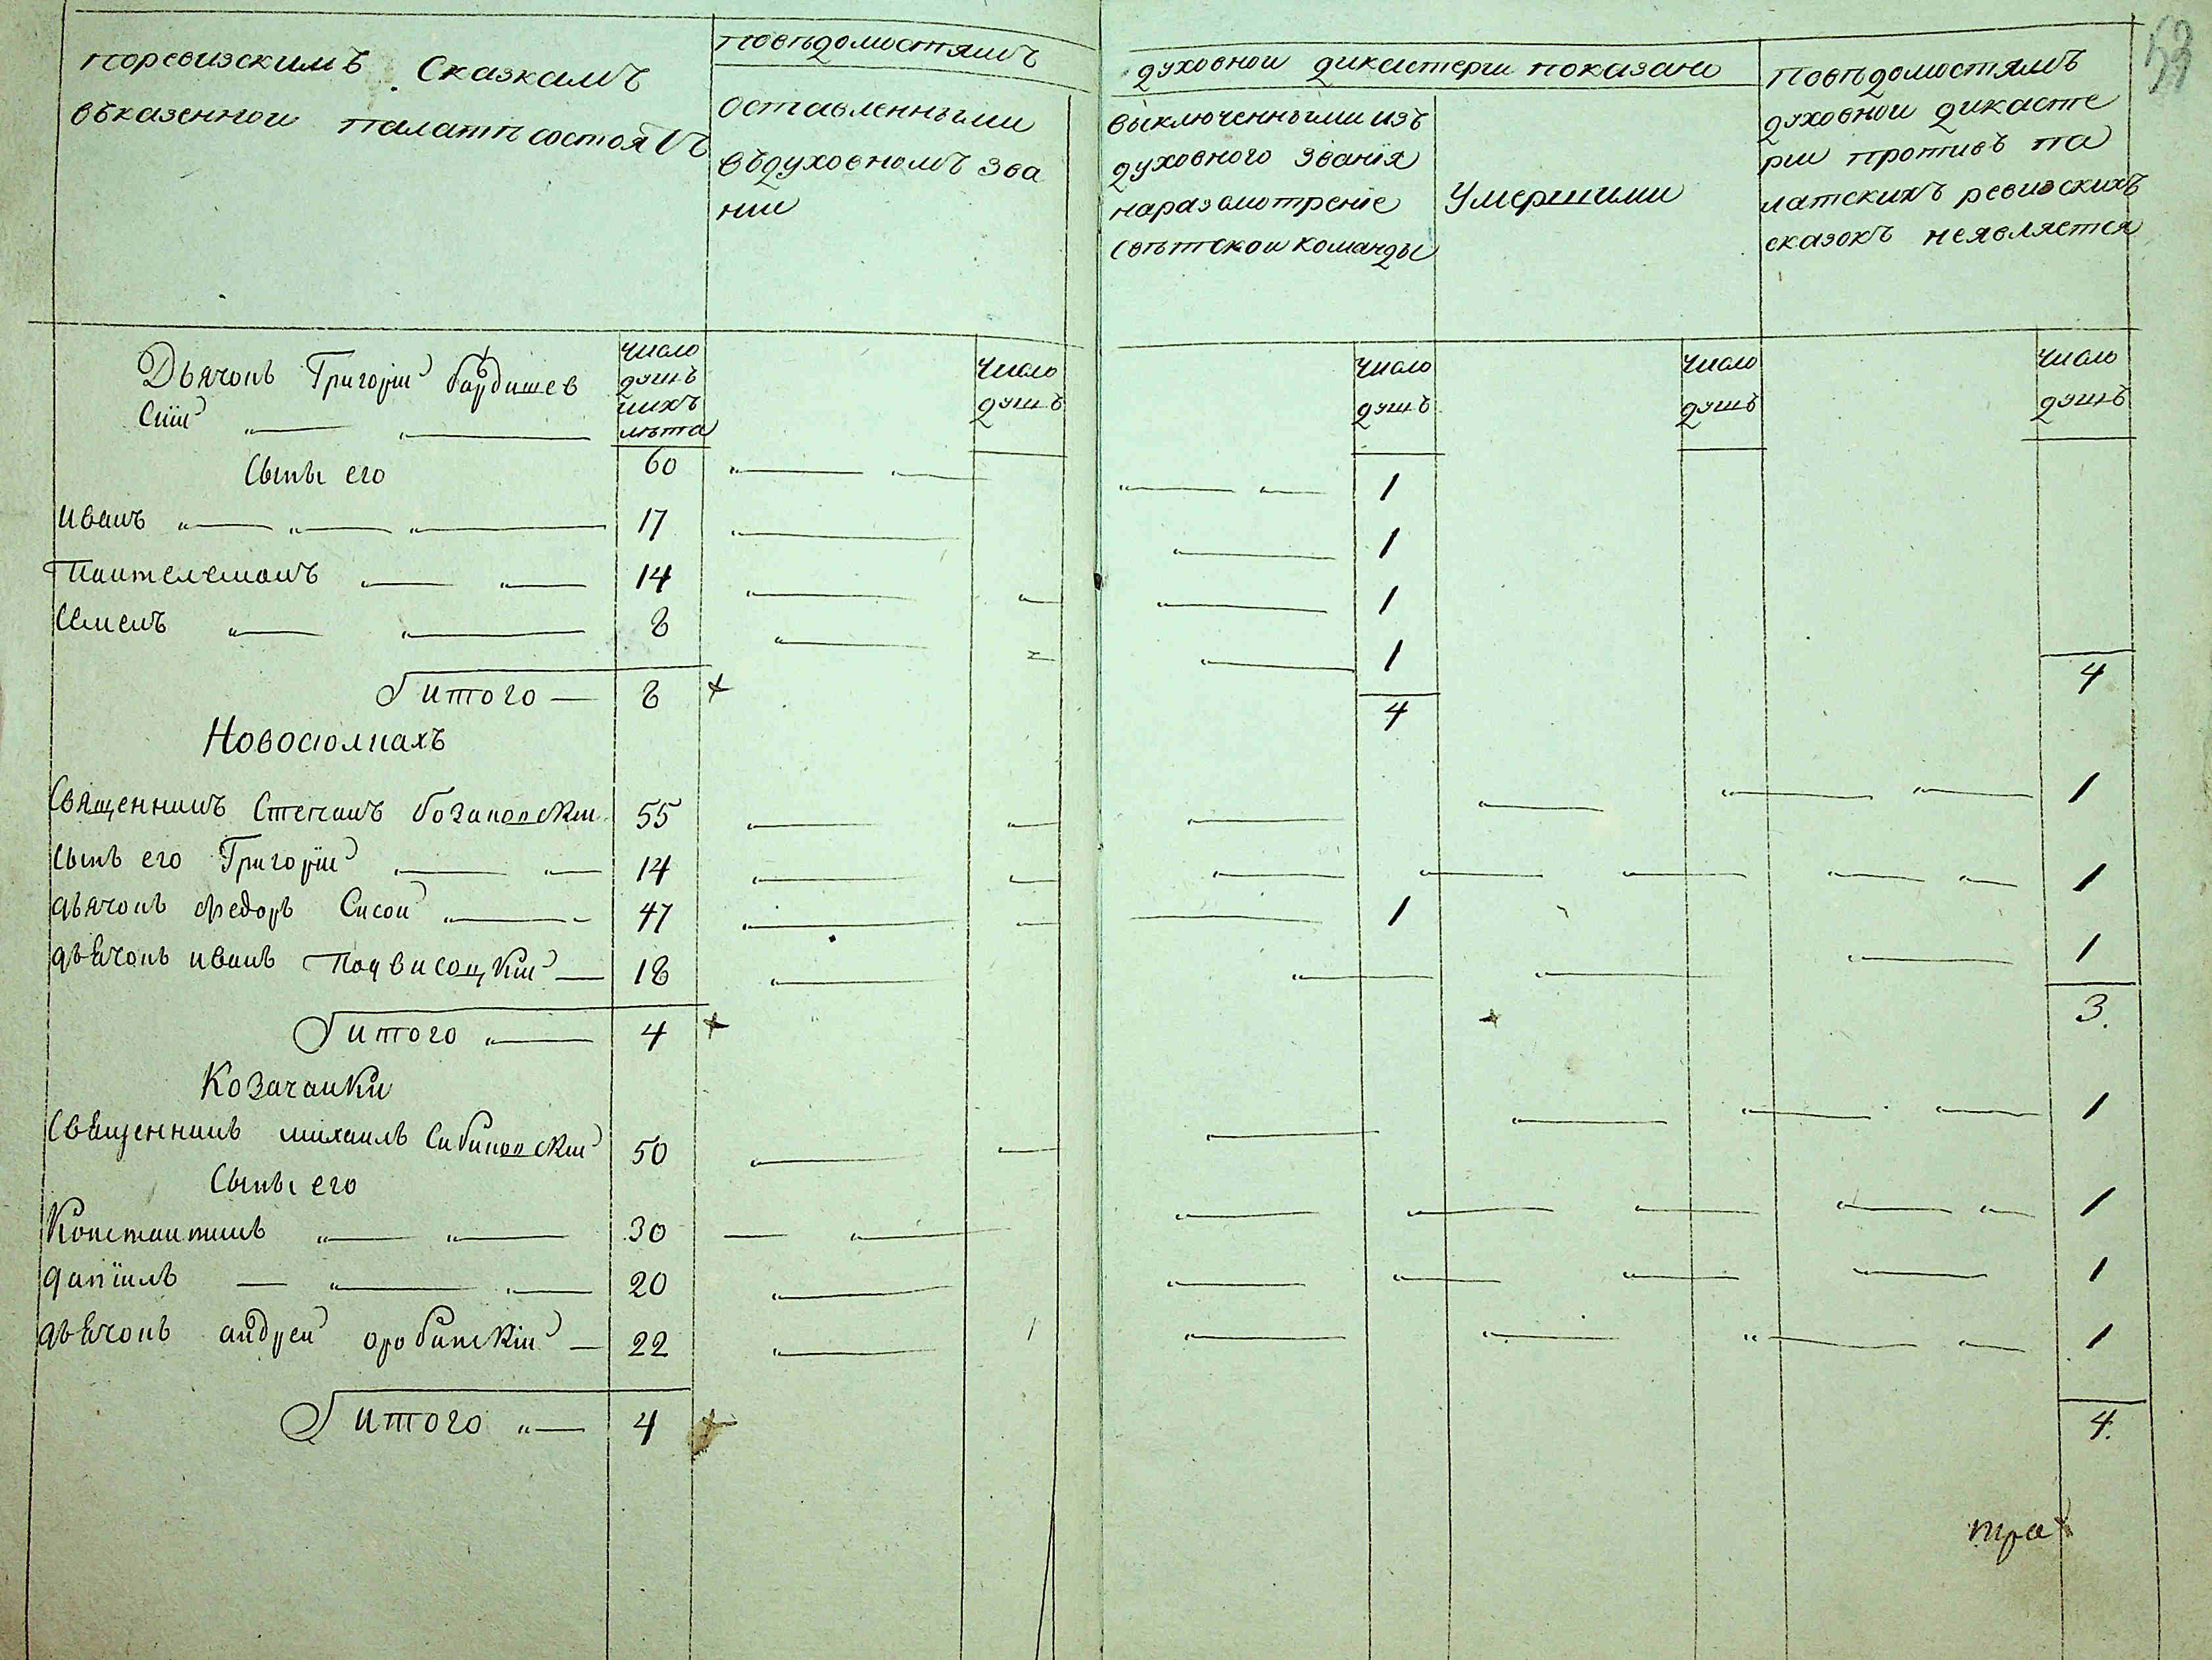 53
поревизскимъ Сказкамъ
вѣказенной палатѣ состоятъ
повѣдомостямъ
оставленными
въдуховномъ зва
нии
духовной дикастерии показано
выключенными изъ
духовного званїя
наразсмотренїе
свѣтской команды
Умершими
повѣдомостямъ
духовной дикасте
рии противъ па
латскихъ ревизскихъ
сказокъ неявляется
Дьячокъ Григорїй
число
душъ
ихъ
лѣта
число
душъ
число
душъ
число
душъ
число
душъ
Сыны его 60 1
иванъ 17 1
Пантелемонъ 14 1
Семенъ 8 1
итого 8 4 4
Священникъ Степанъ 55 1
сынъ его Григорїй 14 1
дьячокъ федоръ Сисой 47 1
дьячокъ иванъ Подвисоцкїй 18 1
итого 4 3.
Козачанки
Священникъ михаилъ 50 1
Сыны его
Константинъ 30 1
данїилъ 20 1
дьячокъ андрей 22 1
итого 4 4.